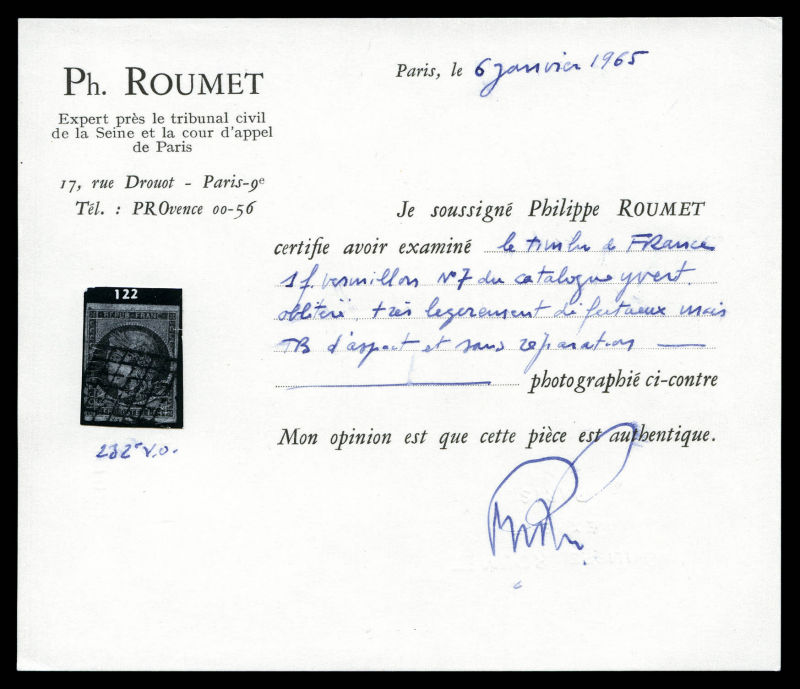 Ph. ROUMET
Expert près le tribunal civil
de la Seine et la cour d'appel
de Paris
17, rue Drouot - Paris-9e
Tél. : PROvence 00-56
Paris, le 6 janvier 1965
Je soussigné Philippe ROUMET
certifie avoir examiné le timbre de FRance
1 f. vermillon N°7 du catalogue yvert.
obliteré très legerement défectueux mais
TB d'aspect et sans réparation
photographié ci-contre
Mon opinion est que cette pièce est authentique.
122
REPUB FRANC
232e V.O.